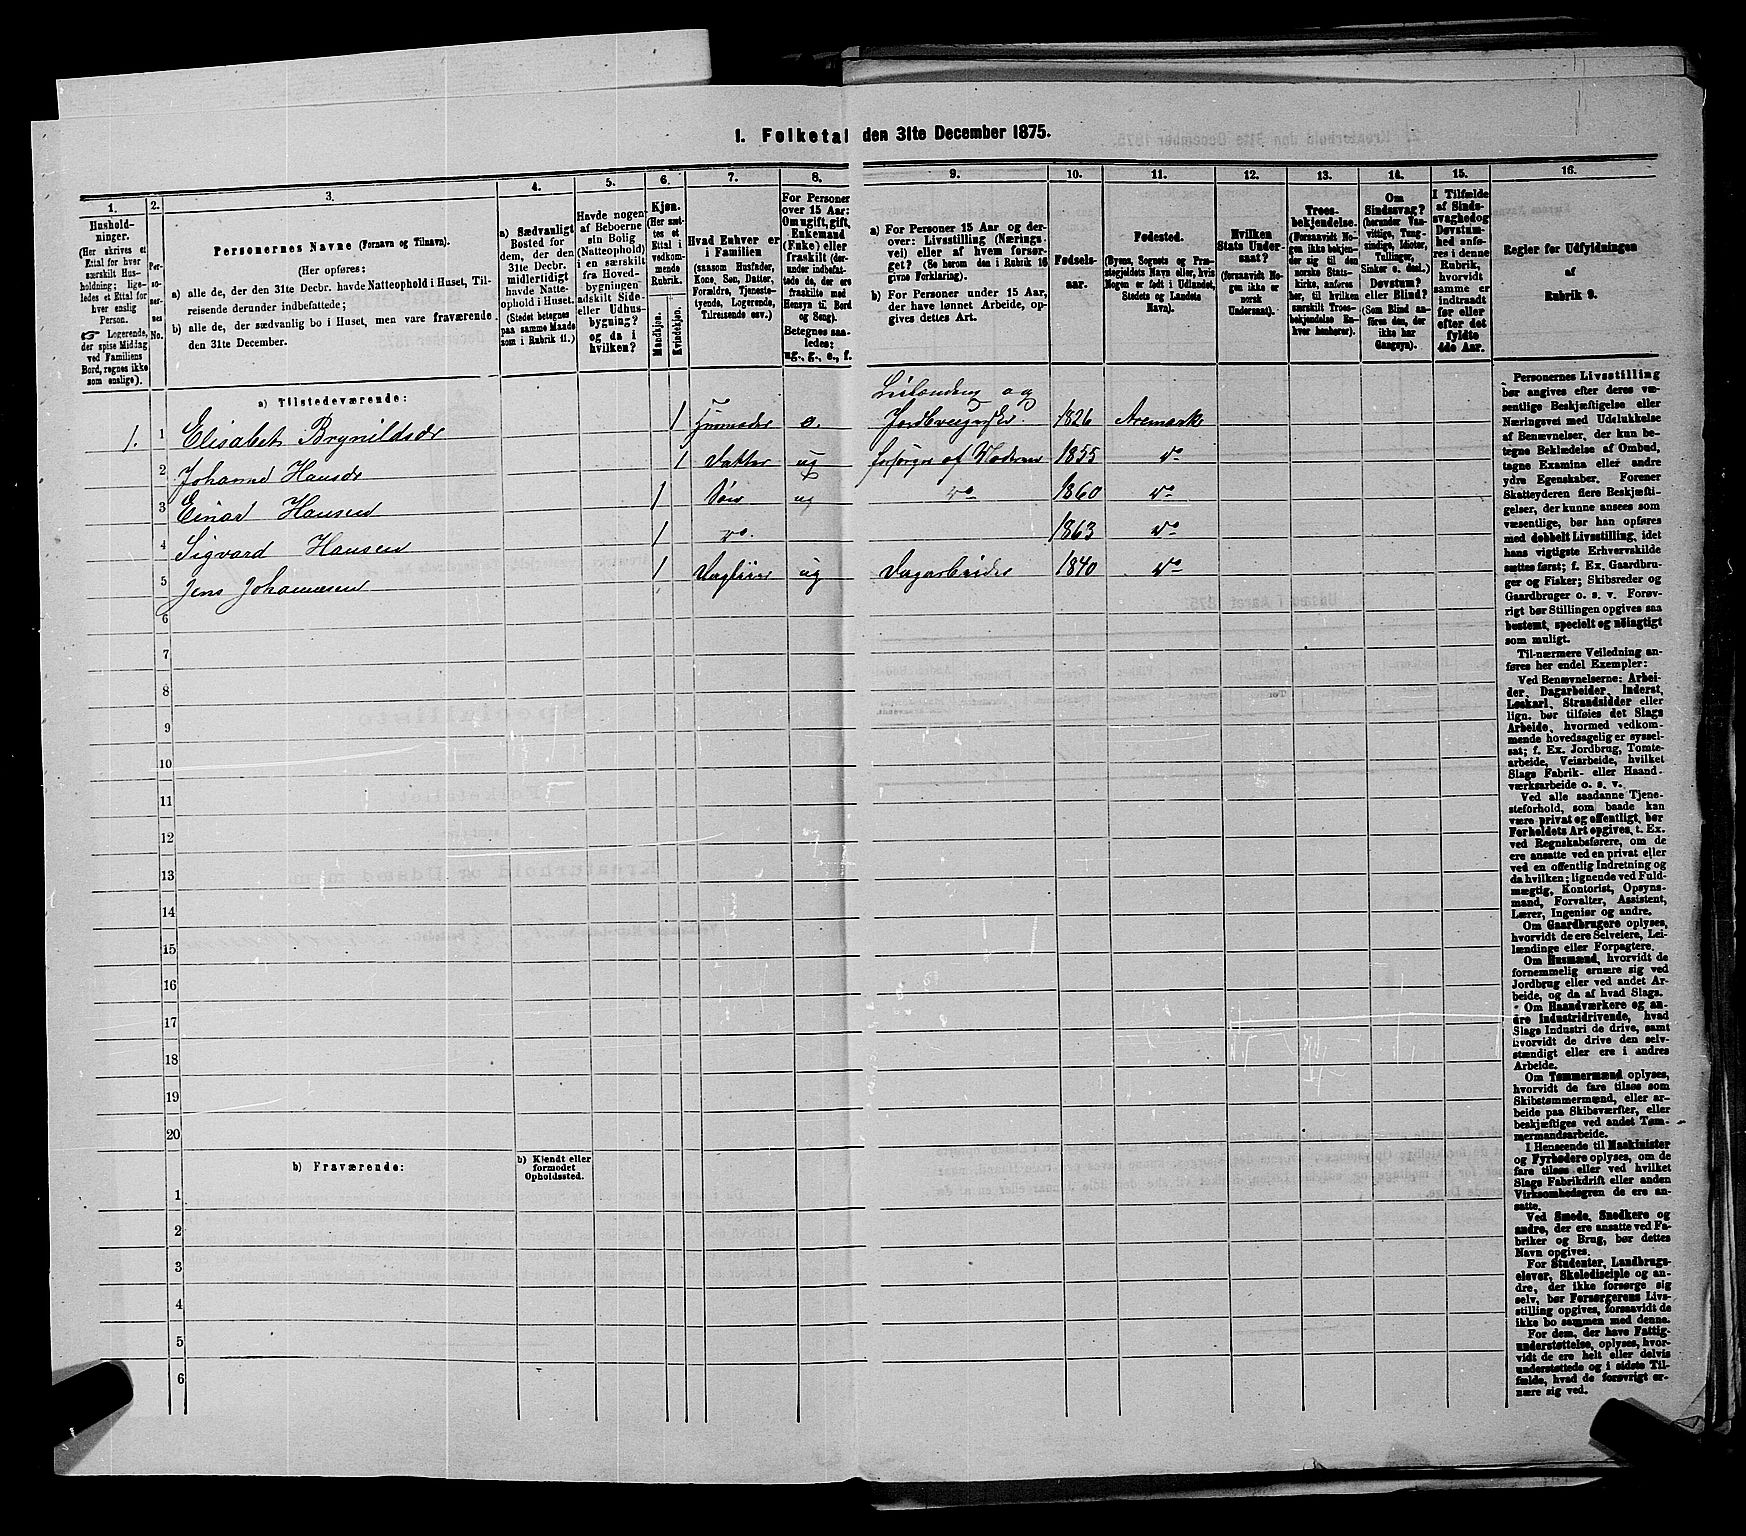 1. Folketal den 31te December 1875.
1. 2. 3. 4. 5. 6. 7. 8. 9. 10. 11. 12. 13. 14. 15. 16.
Husholdninger.
(Her skrives et Ettal for hver særskilt Husholdning; ligeledes et Ettal for hver enslig Person.
Logerende, der spise Middag ved Familiens Bord, regnes ikke som enslige).
Personernes No.
Personernes Navne (Fornavn og Tilnavn).
(Her opføres:
a) alle de, der den 31te Decbr. havde Natteophold i Huset, Tilreisende derunder indbefattede;
b) alle de, der sædvanlig bo i Huset, men vare fraværende den 31te December.
a) Sædvanligt Bosted for dem, der den 31te Decbr. havde midlertidigt Natteophold i Huset. (Stedet betegnes paa samme Maade som i Rubrik 11.)
Havde nogen af Beboerne sin Bolig (Natteophold) i en særskilt fra Hovedbygningen adskilt Side- eller Udhusbygning? og da i hvilken?
Kjøn. (Her sættes et Ettal i vedkommende Rubrik.
Mandkjøn. Kvindekjøn.
Hvad Enhver er i Familien
(saasom Husfader, Kone, Søn, Datter, Forældre, Tjenestetyende, Logerende, Tilreisende osv.)
For Personer over 15 Aar: Om ugift, gift, Enkemand (Enke) eller fraskilt (derunder indbefattede de, der ere fraskilte med Hensyn til Bord og Seng).
Betegnes saaledes: ug., g., e., f.
a) For Personer 15 Aar og derover: Livsstilling (Næringsvei) eller af hvem forsørget? (Se herom den i Rubrik 16 givne Forklaring).
b) For Personer under 15 Aar, der have lønnet Arbeide, opgives dettes Art.
Fødselsaar.
Fødested.
(Byens, Sognets og Præstegjeldets Navn eller, hvis Nogen er født i Udlandet, Stedets og Landets Navn).
Hvilken Stats Undersaat?
(forsaavidt Nogen ikke er norsk Undersaat).
Troesbekjendelse.
(Forsaavidt Nogen ikke bekjender sig til den norske Statskirke, anføres her, til hvilken særskilt Troesbekjendelse Enhver henhører).
Om Sindssvag? (herunder Vanvittige, Tungsindige, Idioter, Tullinger, Sinker o. desl.) Døvstum? eller Blind? (Som Blind anføres den, der ikke har Gangsyn).
I Tilfælde af Sindssvaghed og Døvstumhed anføres i denne Rubrik, hvorvidt samme er indtraadt før eller efter det fyldte 4de Aar.
Regler for Udfyldningen
af
Rubrik 9.
a) Tilstedeværende:
1. 1 Elisabet Brynildsdr 1 Husmoder e. Leilænding og Jordbrugerske. 1826 Aremark
2 Johanne Hansdr 1 Datter ug forsørges af Moderen 1855 do
3 Einar Hansen 1 Søn ug do 1860 do
4 Sigvard Hansen 1 do. 1863 do
5 Jens Johannesen 1 Logerer ug Dagarbeider 1840 do
6
7
8
9
10
11
12
13
14
15
16
17
18
19
20
b) Fraværende:
b) Kjendt eller formodet Opholdssted.
1
2
3
4
5
6
Personernes Livsstilling
bør angives efter deres væ-
sentlige Beskjæftigelse eller
Næringsvei med Udelukkelse
af Benævnelser, der kun be-
tegne Beklædelse af Ombud,
tagne Examina eller andre
ydre Egenskaber. Forener
Skatteyderen flere Beskjæfti-
gelser, der kunne ansees som
væsentlige, bør han opføres
med dobbelt Livsstilling, idet
hans vigtigste Erhvervskilde
sættes først; f. Ex. Gaardbru-
ger og Fisker; Skibsreder og
Gaardbruger o. s. v. Forøv-
rigt bør Stillingen opgives saa
bestemt, specielt og nøiagtigt
som muligt.
Til nærmere Veiledning an-
føres her endel Exempler:
Ved Benævnelserne: Arbei-
der, Dagarbeider, Inderst,
Løskarl, Strandsidder eller
lign. bør tilføies det Slags
Arbeide, hvormed vedkom-
mende hovedsagelig er syssel-
sat; f. Ex. Jordbrug, Tomte-
arbeide, Veiarbeide, hvilket
Slags Fabrik- eller Haand-
værksarbeide o. s. v.
Ved alle saadanne Tjene-
steforhold, som baade kan
være privat og offentligt, bør
Forholdets Art opgives, t. Ex.
ved Regnskabsførere, om de
ere ansatte ved en privat eller
ved en offentlig Indretning og
da hvilken; lignende ved Fuld-
mægtig, Kontorist, Opsyns-
mand, Forvalter, Assistent,
Lærer, Ingeniør og andre.
Om Gaardbrugere oplyses,
hvorvidt de ere Selveiere, Lei-
lændinge eller Forpagtere.
Om Husmænd, hvorvidt de
fornemmelig ernære sig ved
Jordbrug eller ved andet Ar-
beide, og da af hvad Slags.
Om Haandværkere og an-
dre Industridrivende, hvad
Slags Industri de drive, samt
hvorvidt de drive den selv-
stændigt eller ere i andres
Arbeide.
Om Tømmermænd oplyses,
hvorvidt de fare tilsøs som
Skibstømmermænd, eller ar-
beide paa Skibsværfter, eller
beskjæftiges ved andet Tøm-
mermandsarbeide.
I Henseende til Maskinister
og Fyrbødere oplyses, om de
fare tilsøs eller ved hvilket
Slags Fabrikdrift eller anden
Virksomhedsgren de ere an-
satte.
Ved Smede, Snedkere og
andre, der ere ansatte ved Fa-
briker og Brug, bør dettes
Navn opgives.
For Studenter, Landbrugs-
elever, Skoledisciple og an-
dre, der ikke forsørge sig
selv, bør Forsørgerens Livs-
stilling opgives, forsaavidt de
ikke bo sammen med denne.
For dem, der have Fattig-
understøttelse, oplyses, hvor-
vidt de ere helt eller delvis
understøttede og i sidste Til-
fælde, hvad de forøvrigt er-
nære sig ved.